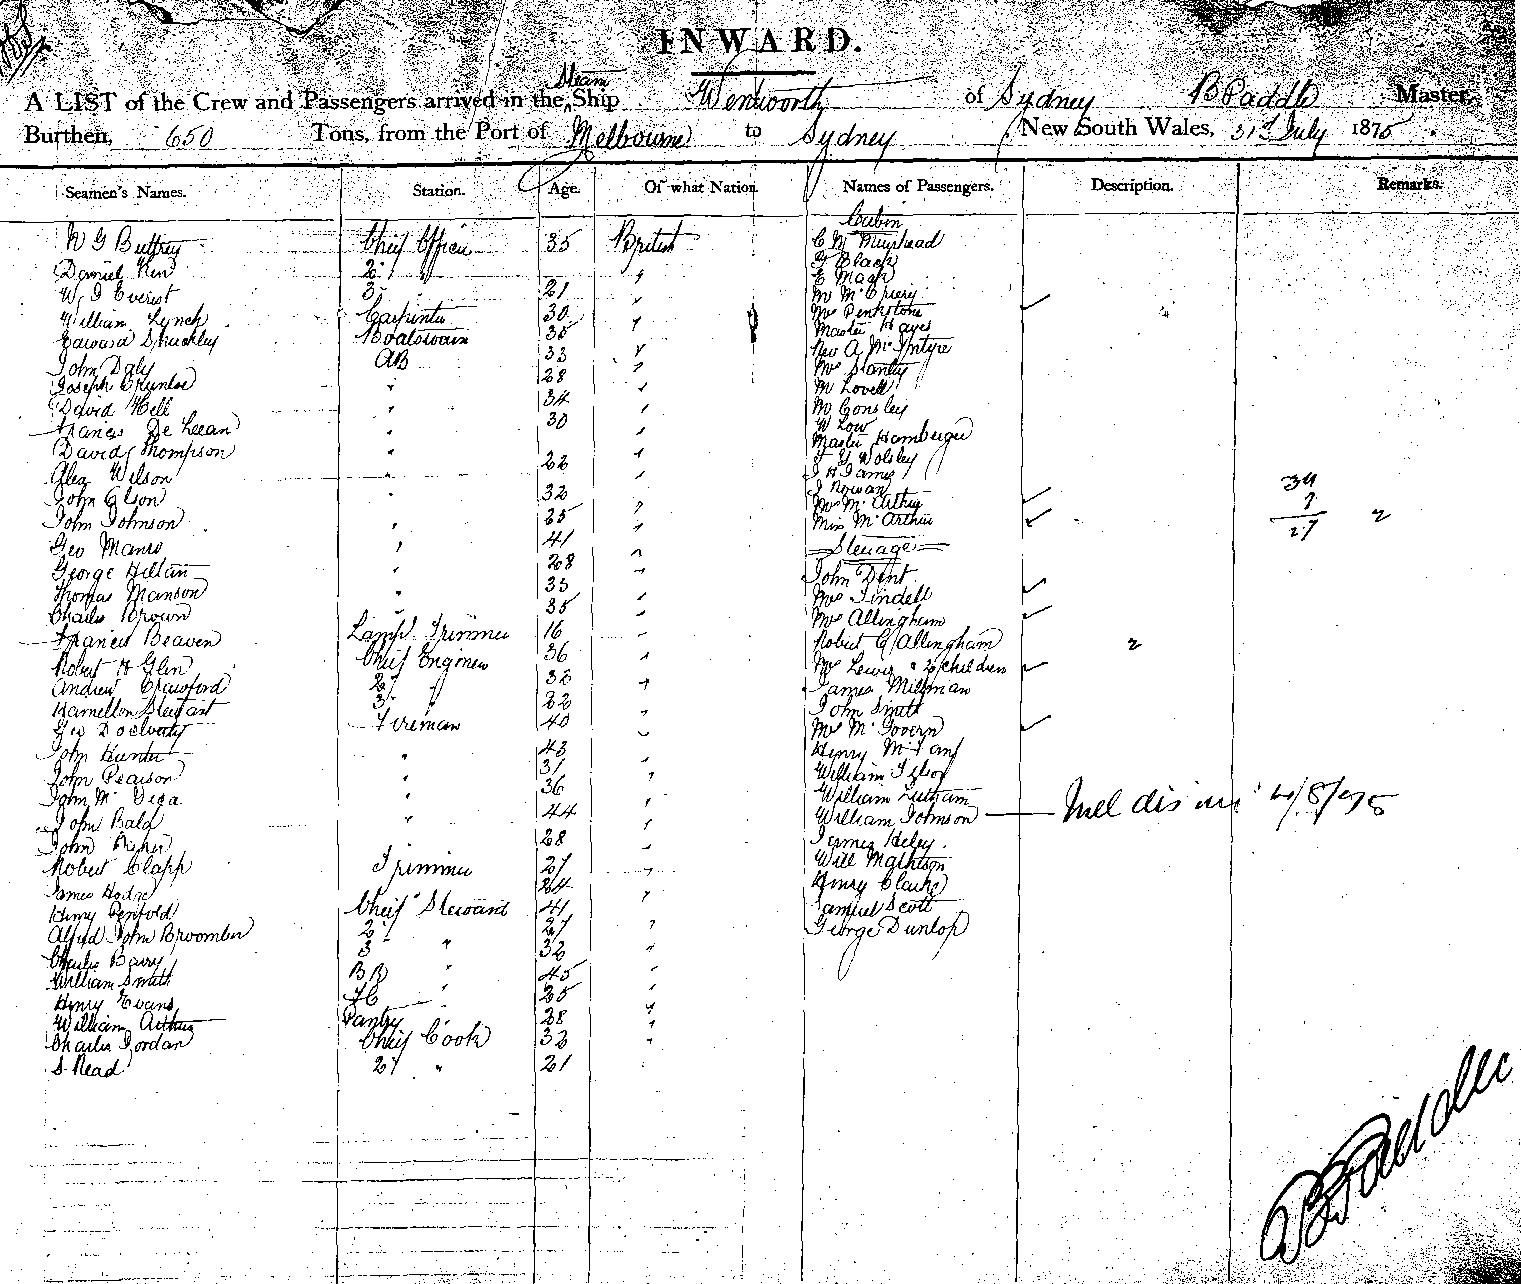 INWARD.
A LIST of the Crew and Passengers arrived in the Steam Ship Wentworth of Sydney B Paddle Master,
Burthen, 650 Tons, from the Port of Melbourne to Sydney New South Wales, 31st July 1875.
Seamen's Names. Station. Age. Of what Nation. Names of Passengers. Description. Remarks.
Cabin
Chief Officer 35 British C M Muirhead
Daniel 2 " " G Black
E Mack
W J Everest 3 21 " Mr McCrery
William Lynch Carpenter 30 " Mrs Penkstone
Edward Shuckley Boatswain 35 " Master Hayes
Rev A McIntyre
John Daly AB 33 " Mrs Stanly
Joseph " 28 " M Lovell
David Hell " 34 " Mr Consley
Francis De Leean " 30 " W Low
David Thompson " " Master Hamberger
J G Wolsley
Alex Wilson " 22 " J H James
John Olson " 32 " J Rowan
Mrs McArthur
John Johnson " 25 " Miss McArthur
34
7
27 2
Geo Manro " 41 " Steerage
George Hillain " 28 " John Dent
Thomas Manson " 33 " Mrs Tindell
Charles Brown " 35 " Mrs Allingham
Francis Beaven Lamp Trimmer 16 " Robert G Allingham 2
Robert H Glen Chief Engineer 36 " Mrs Lewis & 2 children
Andrew Crawford 2 " 32 " James Millman
Hamellon Stewart 3 " 22 " John Smith
Geo Docherty Fireman 40 " Mrs McGovern
John Hunter " 43 " Henry
John Pearson " 31 " William
John " 36 " William Latham
John Bald " 44 " William Johnson — 4/8/75
John Fisher 28 " James Heley
Robert Clapp Trimmer 27 " Will Mathison
James Hodge 24 Henry Clarke
Henry Penfold Chief Steward 41 " Samuel Scott
Alfred John Broomber 2 27 " George Dunlop
Charles Barry 3 " 32 "
William Smith BR " 45 "
Henry Evans FC " 25 "
William Arthur Pantry " 28 "
Charles Jordan Chief Cook 32 "
S Read 2 " 21
B Paddle